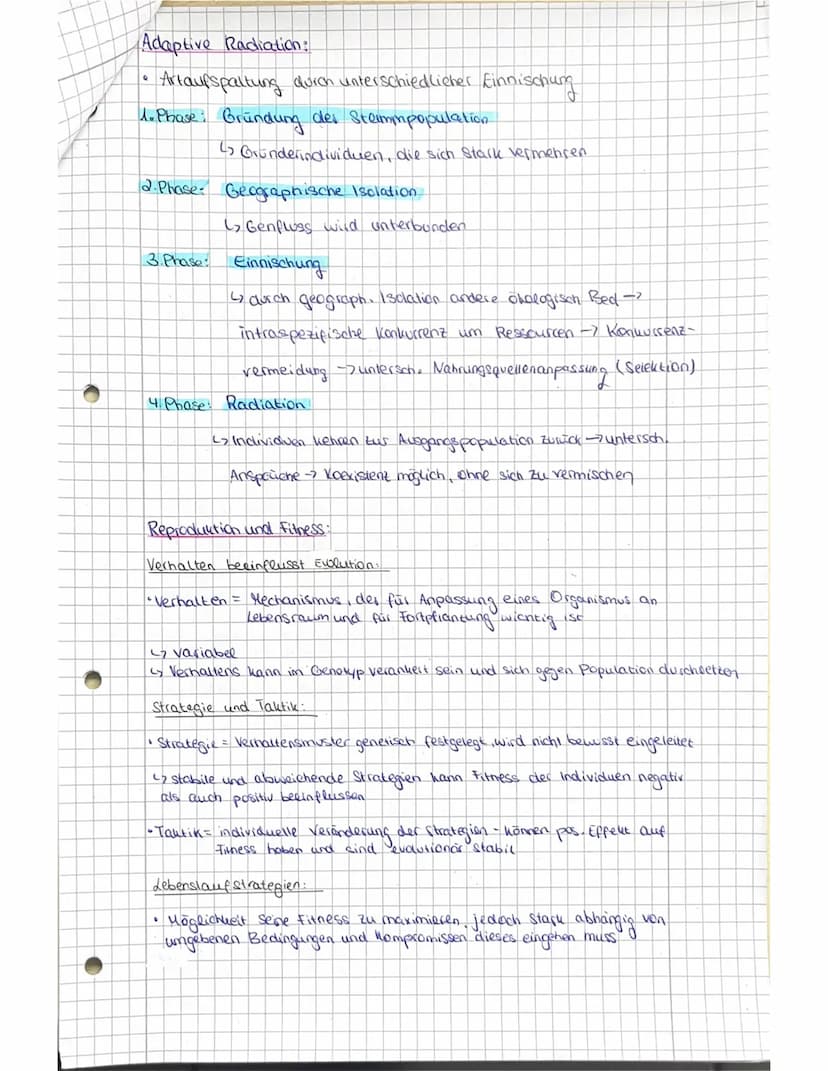 Adaptive Radiation:
• Artaufspaltung durch unterschiedlicher Einnischung
1. Phase: Gründung der Stammpopulation
↳ Gründerindividuen, die sich stark vermehren
2. Phase: Geographische Isolation
↳ Genfluss wird unterbunden
3. Phase: Einnischung
↳ durch geograph. Isolation andere ökologisch Bed →
intraspezifische Konkurrenz um Ressourcen → Konkurrenz-
vermeidung → untersch. Nahrungsquellenanpassung (Selektion)
4. Phase: Radiation
↳ Individuen kehren zur Ausgangspopulation zurück → untersch.
Ansprüche → Koexistenz möglich, ohne sich zu vermischen
Reproduktion und Fitness:
Verhalten beeinflusst Evolution:
• Verhalten = Mechanismus, der für Anpassung eines Organismus an
Lebensraum und für Fortpflantung wichtig ist
↳ variabel
↳ Verhaltens kann im Genotyp verankert sein und sich gegen Population durchsetzen
Strategie und Taktik:
• Strategie = Verhaltensmuster genetisch festgelegt, wird nicht bewusst eingeleitet
↳ stabile und abweichende Strategien kann Fitness der Individuen negativ
als auch positiv beeinflussen
• Taktik = individuelle Veränderung der Strategien - können pos. Effekt auf
Fitness haben und sind evolutionär stabil
Lebenslaufstrategien:
• Möglichkeit seine Fitness zu maximieren, jedoch stark abhängig von
umgebenen Bedingungen und Kompromissen dieses eingehen muss